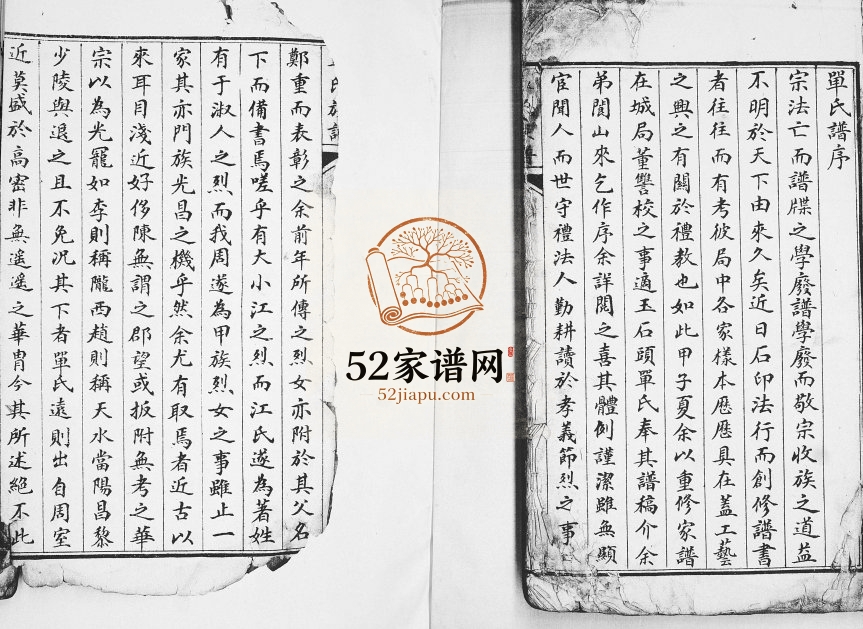 單氏譜序
宗法亡而譜牒之學廢譜學廢而敬宗收族之道益
不明於天下由來久矣近日石印法行而創修譜書
者往往而有考彼局中各家樣本歷歷具在蓋工藝
之興之有關於禮教也如此甲子夏余以重修家譜
在城局董讐校之事適玉石頭單氏奉其譜稿介余
弟閬山來乞作序余詳閱之喜其體例謹潔雖無顯
宦聞人而世守禮法人勤耕讀於孝義節烈之事
氏族譜
鄭重而表彰之余前年所傳之烈女亦附於其父名
下而備書焉嗟乎有大小江之烈而江氏遂為著姓
有于淑人之烈而我周遂為甲族烈女之事雖止一
家其亦門族光昌之機乎然余尤有取焉者近古以
來耳目淺近好侈陳無謂之郡望或扳附無考之華
宗以為光寵如李則稱隴西趙則稱天水當陽昌黎
少陵與退之且不免況其下者單氏遠則出自周室
近莫盛於高密非無遙遙之華胄今其所述絕不此
52家谱网
52jiapu.com